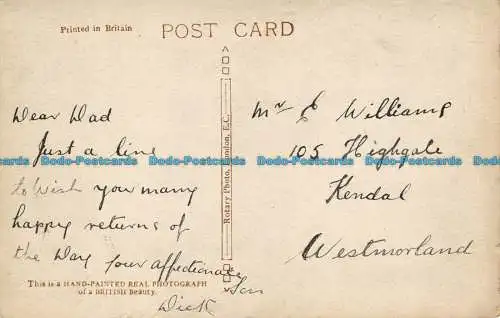 Printed in Britain
POST CARD
Dear Dad
Just a line
to wish you many
happy returns of
the Day your affectionate
Son
Dick
This is a HAND-PAINTED REAL PHOTOGRAPH
of a BRITISH Beauty.
Rotary Photo, London, E.C.
Mr E Williams
105 Highgate
Kendal
Westmorland
Dodo-Postcards Dodo-Postcards Dodo-Postcards Dodo-Postcards Dodo-Postcards